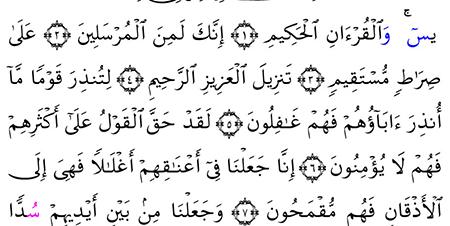 يسٓ ۚ وَٱلْقُرْءَانِ ٱلْحَكِيمِ ﴿١﴾ إِنَّكَ لَمِنَ ٱلْمُرْسَلِينَ ﴿٢﴾ عَلَىٰ
صِرَٰطٍ مُّسْتَقِيمٍ ﴿٣﴾ تَنزِيلَ ٱلْعَزِيزِ ٱلرَّحِيمِ ﴿٤﴾ لِتُنذِرَ قَوْمًا مَّآ
أُنذِرَ ءَابَآؤُهُمْ فَهُمْ غَٰفِلُونَ ﴿٥﴾ لَقَدْ حَقَّ ٱلْقَوْلُ عَلَىٰٓ أَكْثَرِهِمْ
فَهُمْ لَا يُؤْمِنُونَ ﴿٦﴾ إِنَّا جَعَلْنَا فِىٓ أَعْنَٰقِهِمْ أَغْلَٰلًا فَهِىَ إِلَى
ٱلْأَذْقَانِ فَهُم مُّقْمَحُونَ ﴿٧﴾ وَجَعَلْنَا مِنۢ بَيْنِ أَيْدِيهِمْ سُدًّا